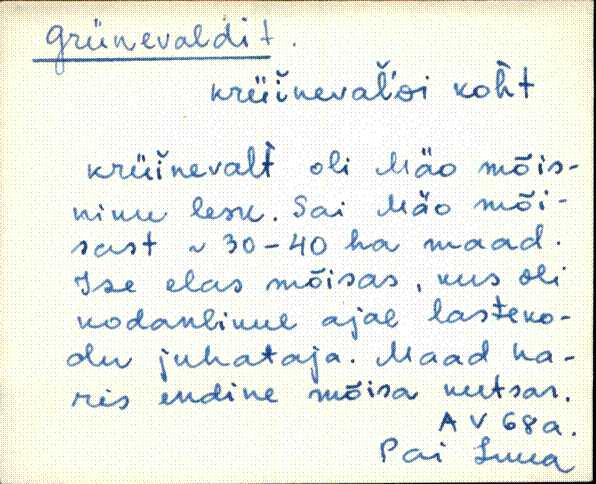 Grünevaldi t.
krüĭnevaľ'di koh̀t
krüĭnevalt̀ oli Mäo mõis-
niku lesk. Sai Mäo mõi-
sast ~ 30-40 ha maad.
Ise elas mõisas, kus oli
kodanlikul ajal lasteko-
du juhataja. Maad ha-
ris endine mõisa kutsar.
AV 68a.
Pai